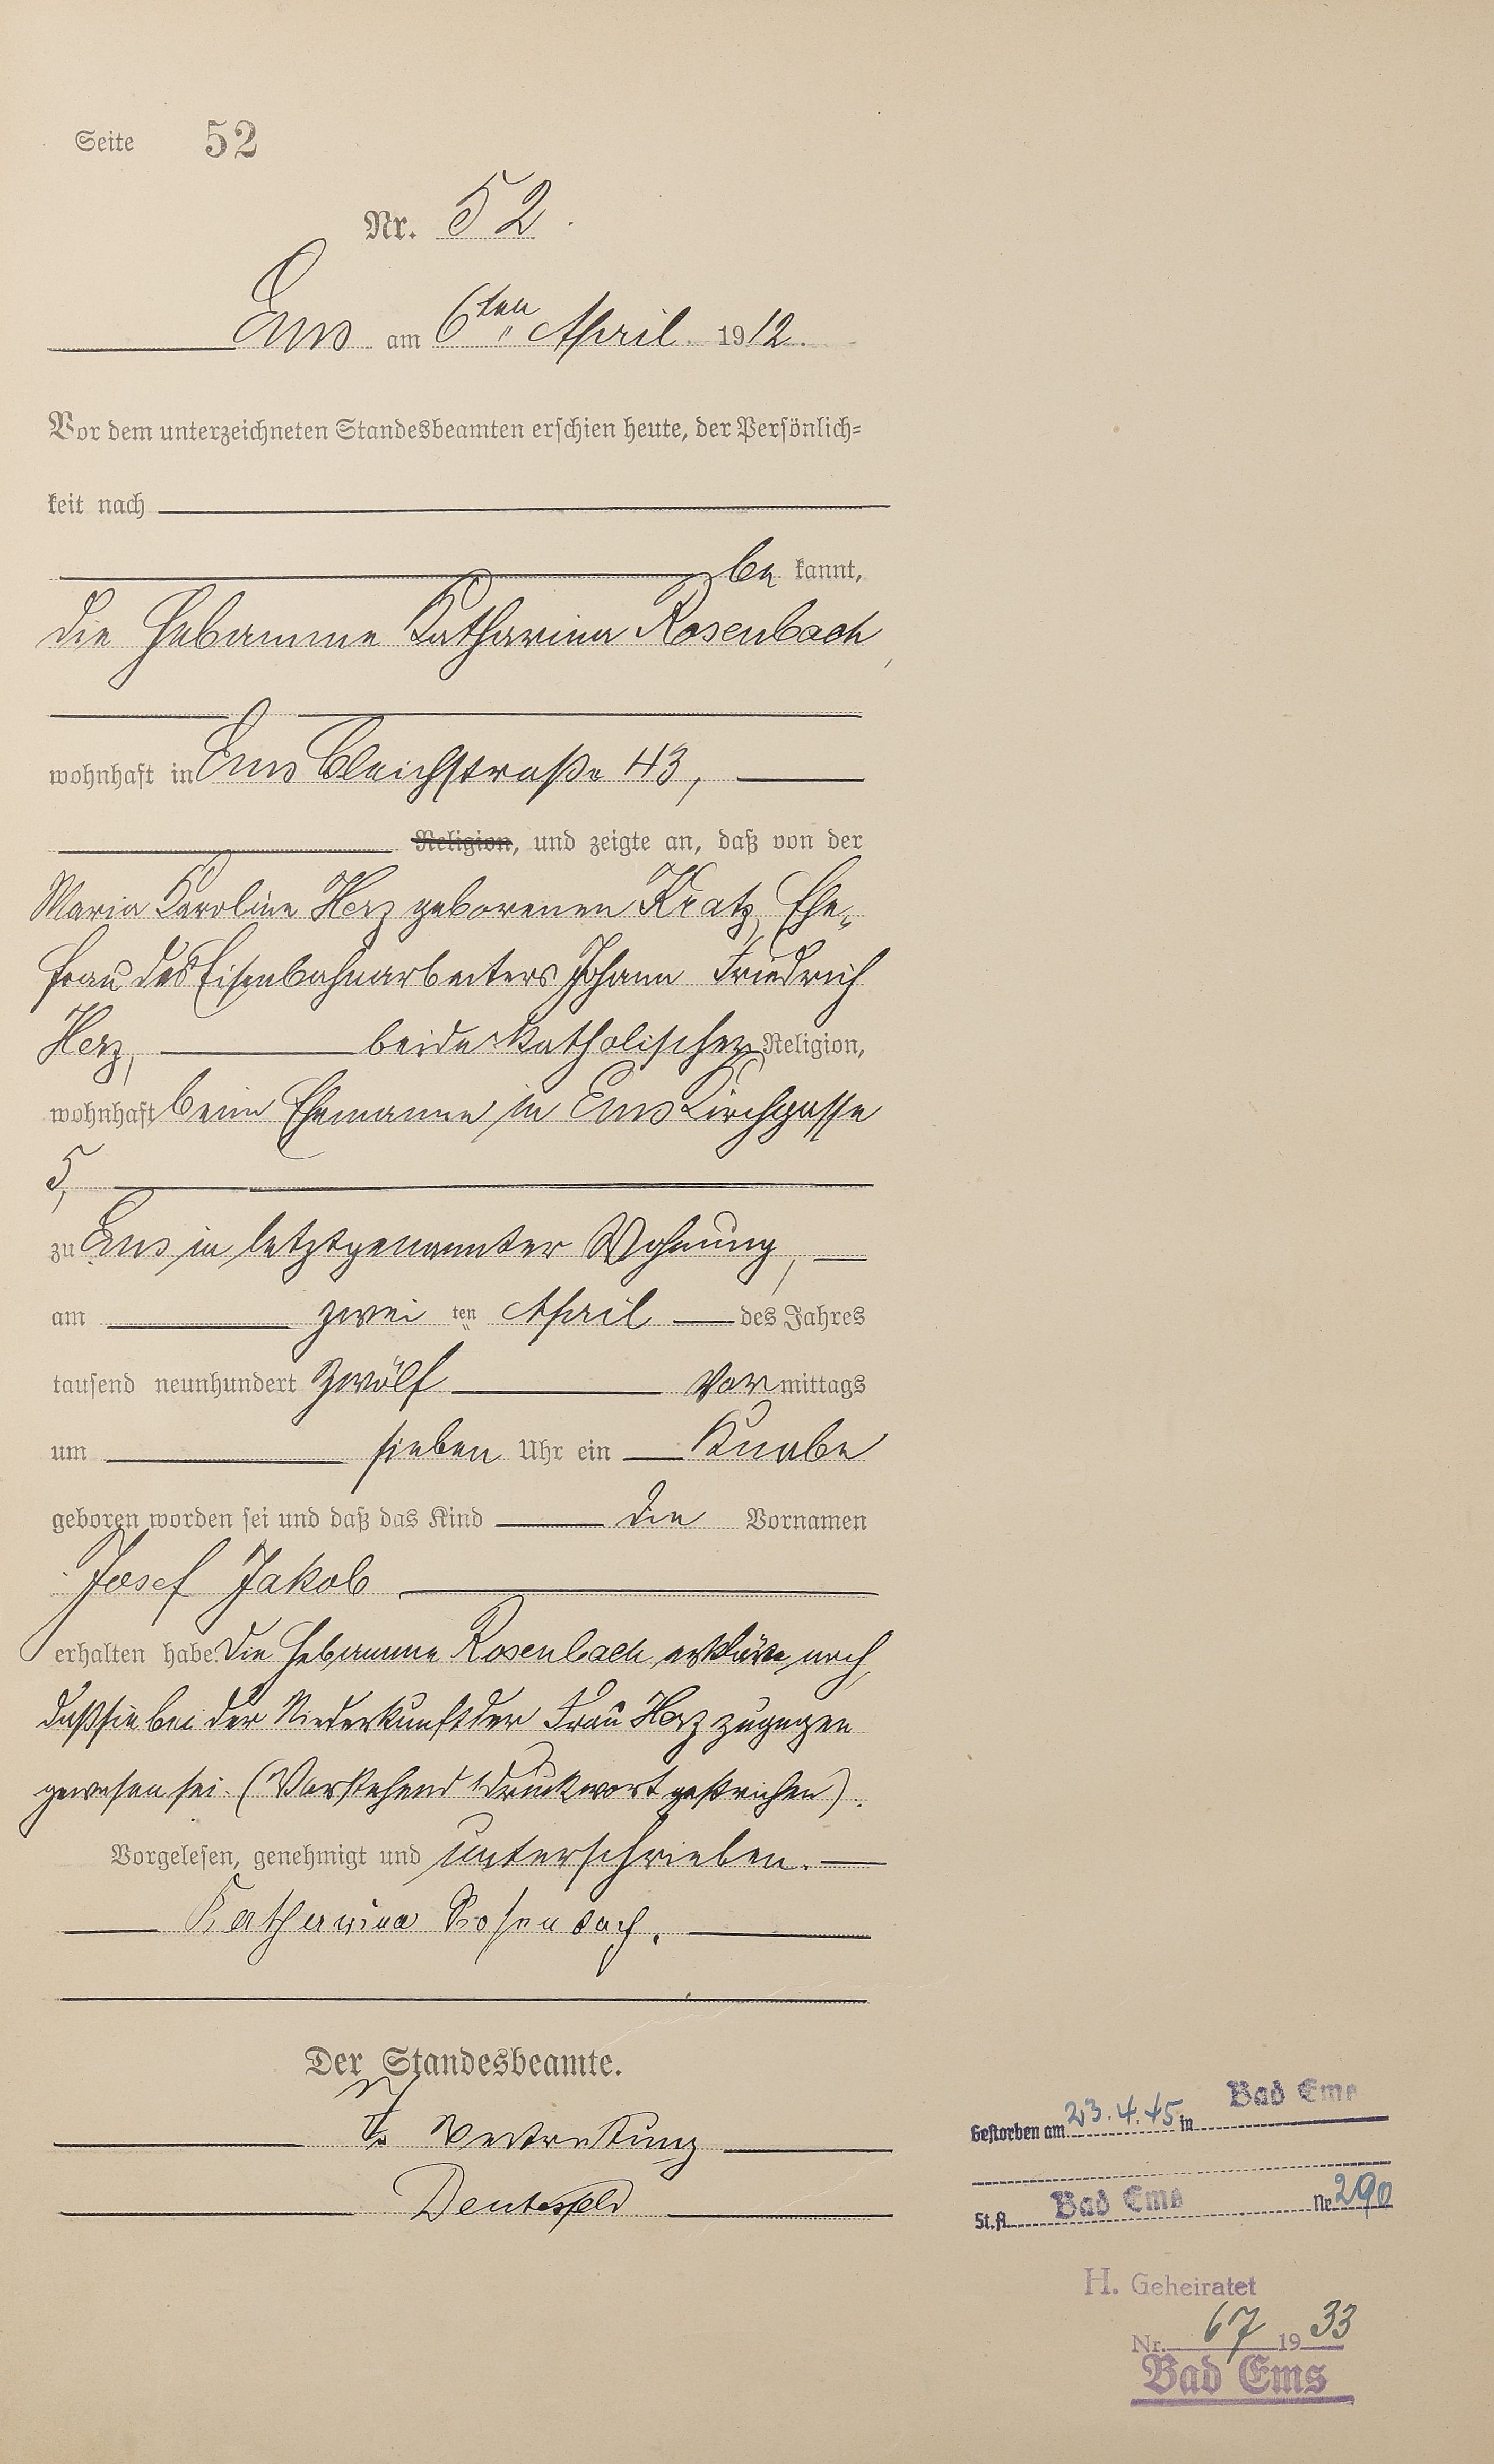 Seite 52
Nr. 52.
Ems am 6ten April 1912.
Vor dem unterzeichneten Standesbeamten erschien heute, der Persönlich=
keit nach
be kannt,
die Hebamme Katharina Rosenbach,
wohnhaft in Ems Bleichstraße 43,
Religion, und zeigte an, daß von der
Maria Karoline Herz geborenen Kratz, Ehe-
frau des Eisenbahnarbeiters Johann Friedrich
Herz, beide katholischer Religion,
wohnhaft beim Ehemanne in Ems Kirchgasse
5,
zu Ems in letztgenannter Wohnung,
am zwei ten April des Jahres
tausend neunhundert zwölf Vor mittags
um sieben Uhr ein Knabe
geboren worden sei und daß das Kind die Vornamen
Josef Jakob
erhalten habe. Die Hebamme Rosenbach erklärte noch,
daß sie bei der Niederkunft der Frau Herz zugegen
gewesen sei. (Vorstehend 1 Druckwort gestrichen).
Vorgelesen, genehmigt und unterschrieben.
Katharina Rosenbach.
Der Standesbeamte.
In Vertretung
Gestorben am 23.4.45 in Bad Ems
St.A. Bad Ems Nr. 290
H. Geheiratet
Nr. 67 1933
Bad Ems